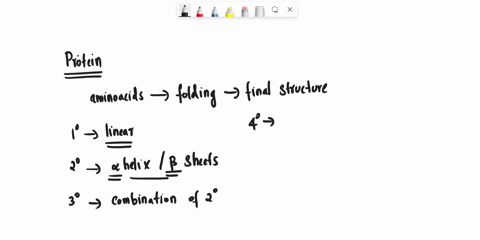 Protein
aminoacids → folding → final structure
1° → linear
4° →
2° → α helix / β sheets
3° → combination of 2°